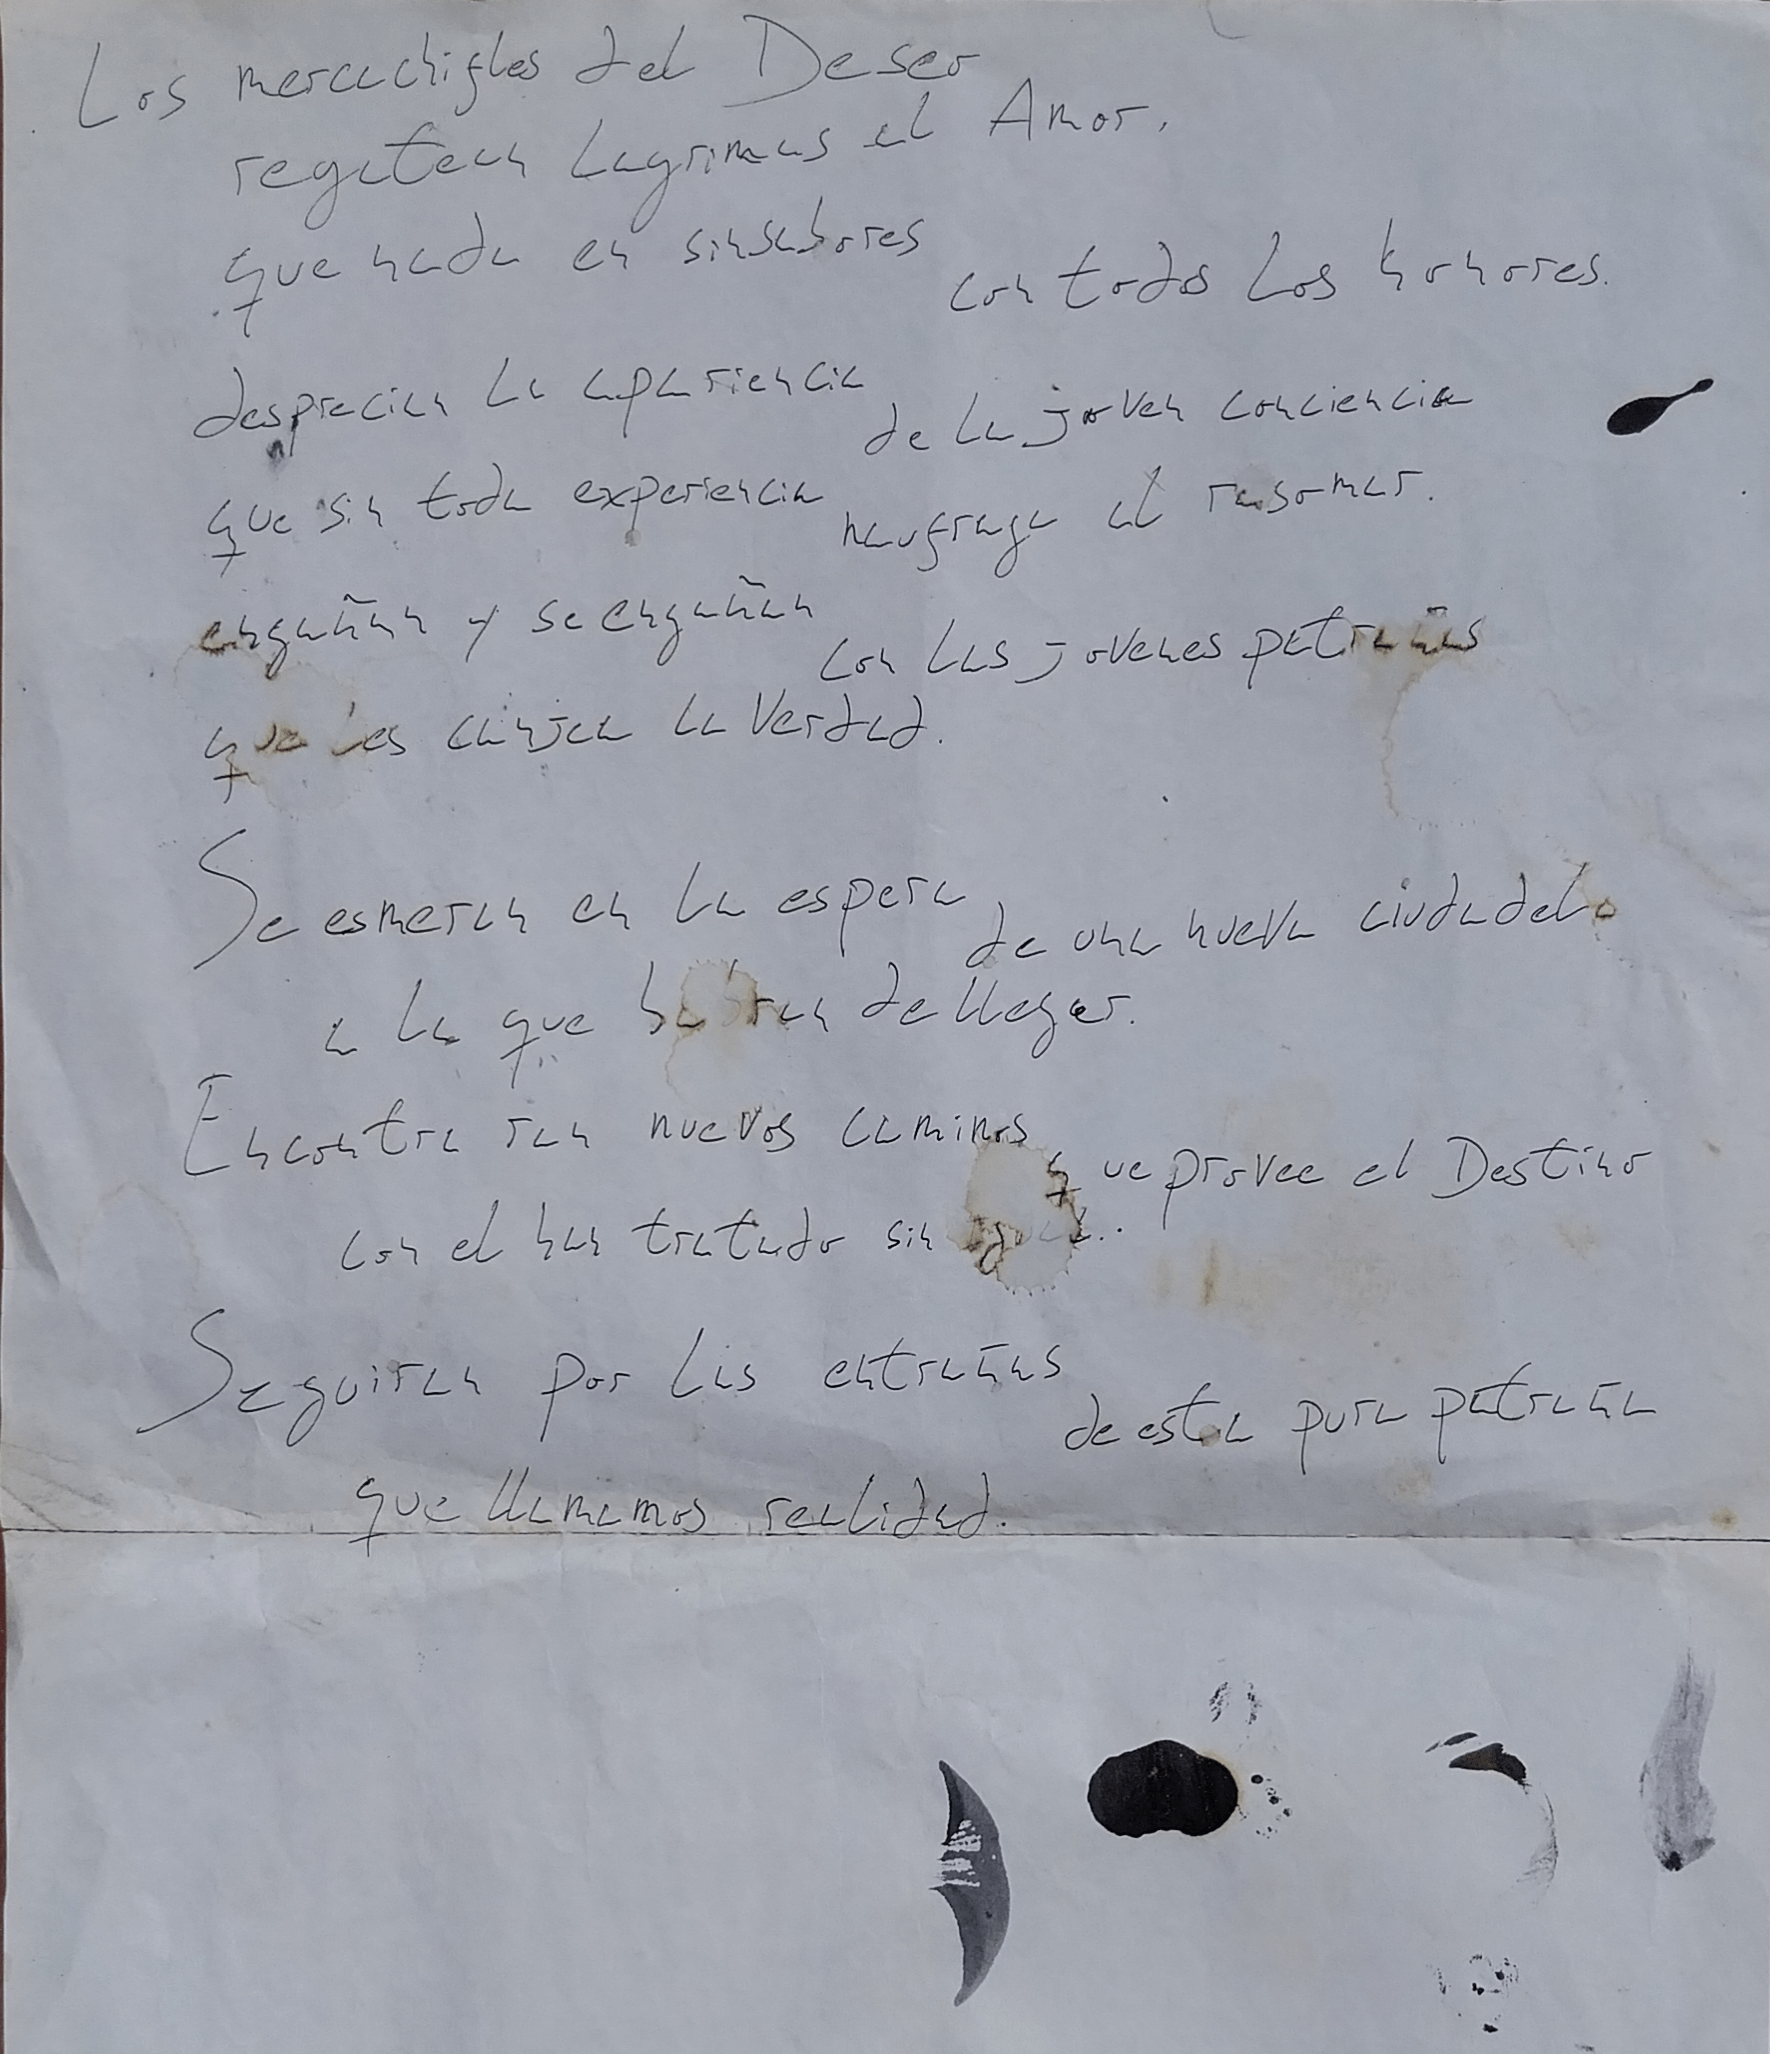 Los mercachifles del Deseo
regatean lagrimas al Amor.
que nada en sinsabores con todos los honores.
desprecian la apariencia de la joven conciencia
que sin toda experiencia naufraga al rasomar.
engañan y se engañan con las jovenes patrañas
que les canjea la Verdad.
Se esmeran en la espera de una nueva ciudadela
a la que habran de llegar.
Encontraran nuevos caminos que provee el Destino
con el han tratado sin igual..
Seguiran por las entrañas de esta pura patraña
que llamamos realidad.